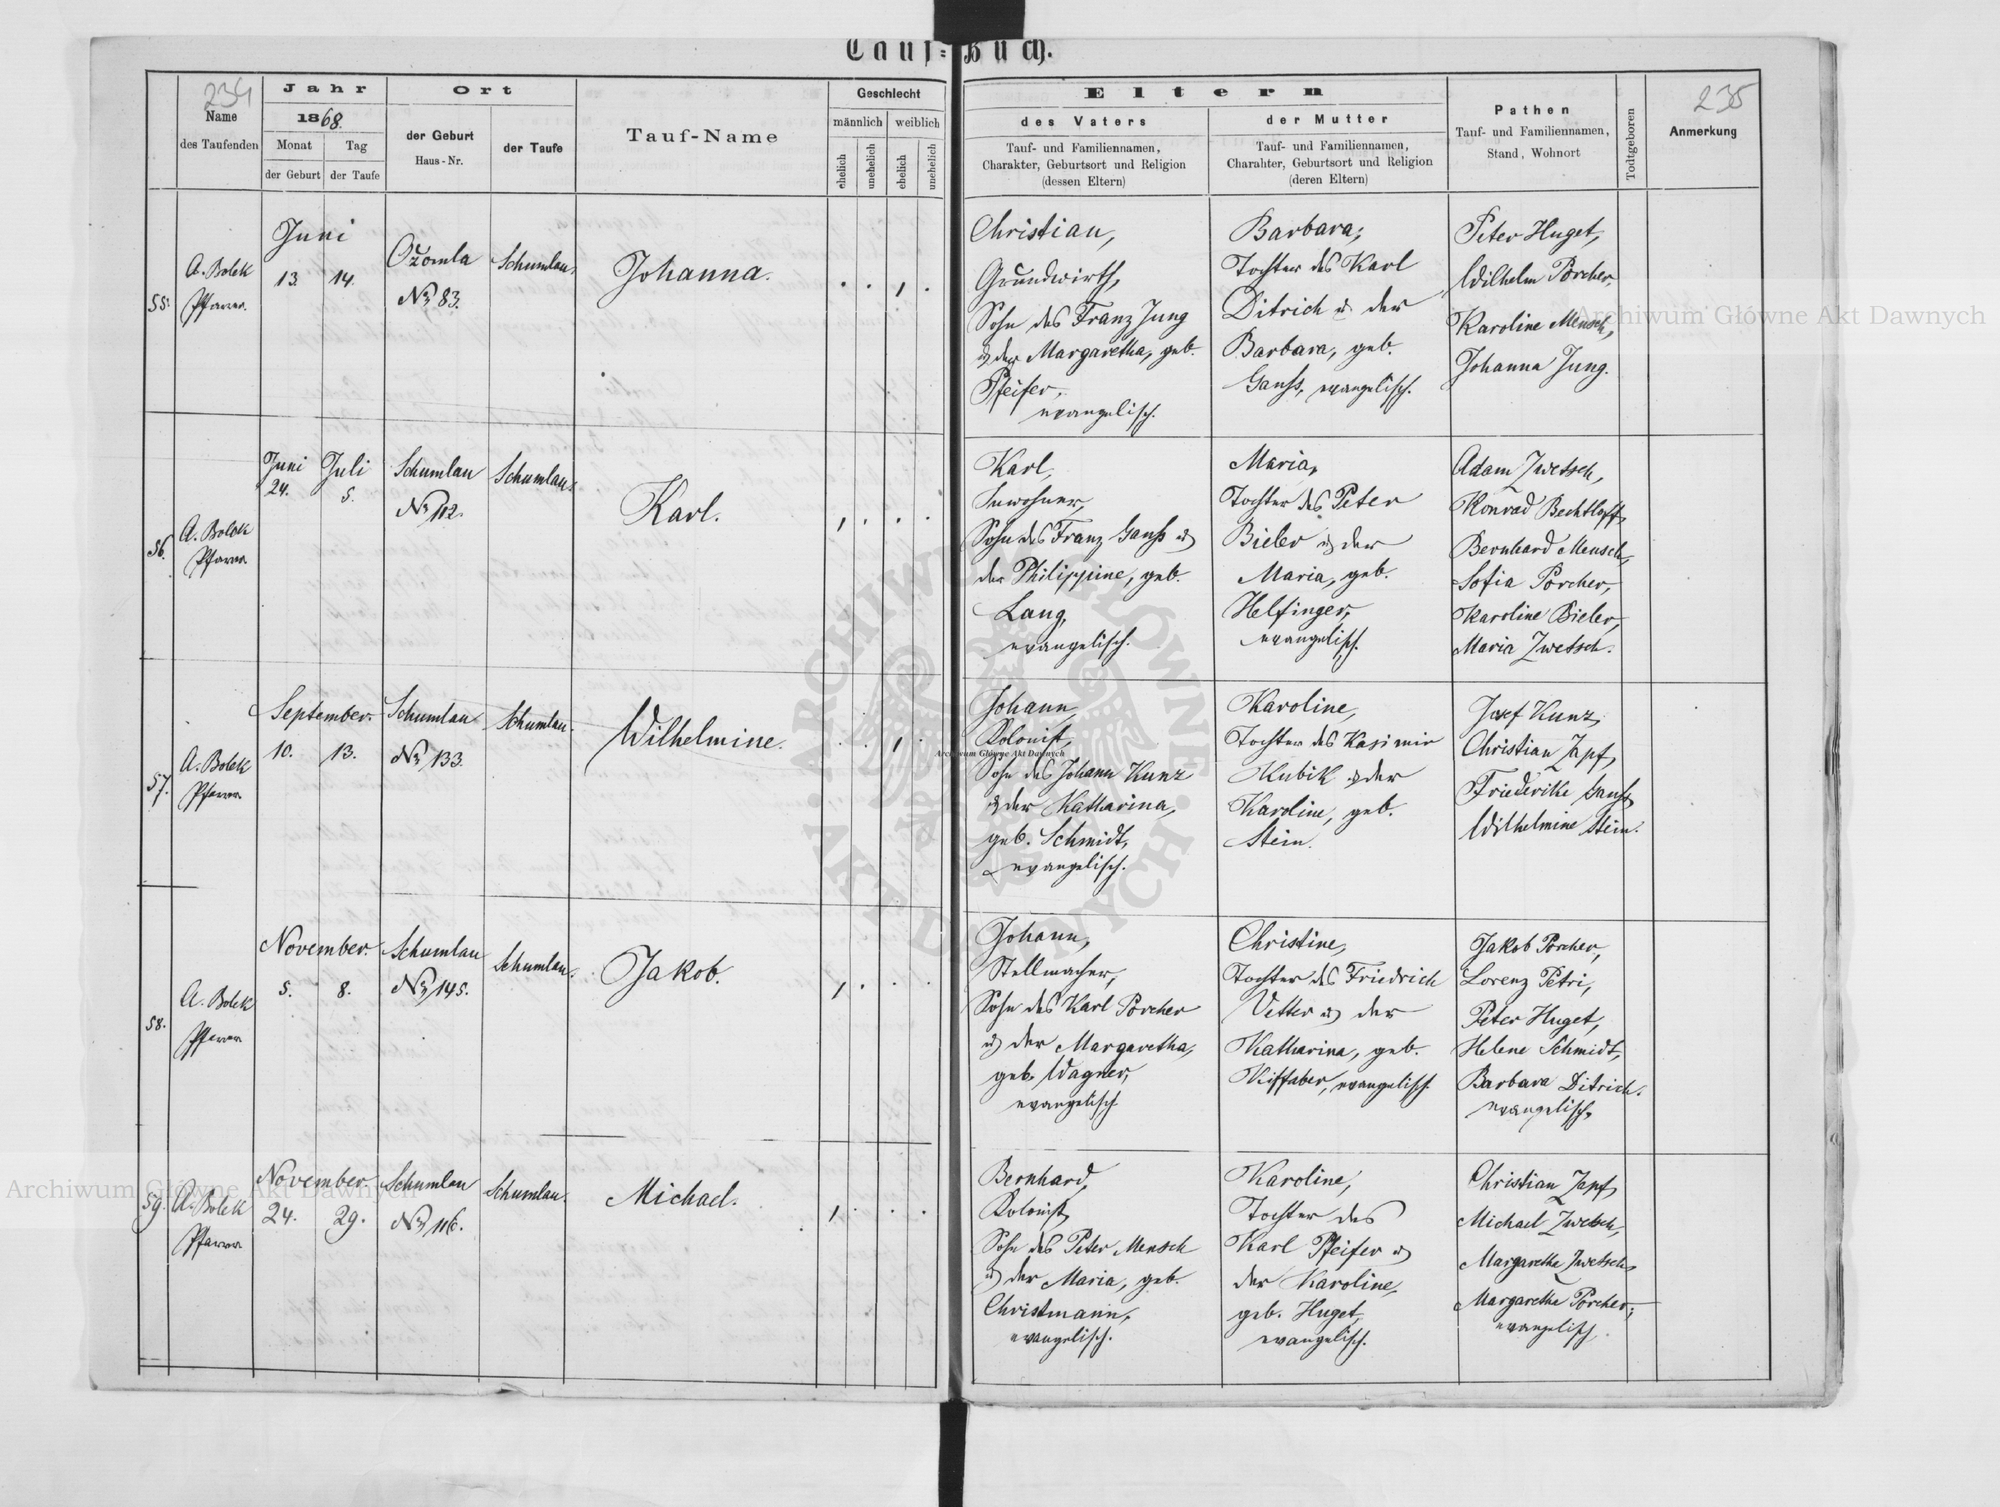 Tauf-Buch.
234
Name
des Taufenden
Jahr
1868.
Monat
Tag
der Geburt
der Taufe
Ort
der Geburt
Haus-Nr.
der Taufe
Tauf-Name
Geschlecht
männlich
weiblich
ehelich
unehelich
ehelich
unehelich
Eltern
des Vaters
Tauf- und Familiennamen,
Charakter, Geburtsort und Religion
(dessen Eltern)
der Mutter
Tauf- und Familiennamen,
Charahter, Geburtsort und Religion
(deren Eltern)
Pathen
Tauf- und Familiennamen,
Stand, Wohnort
Todtgeboren
235
Anmerkung
55.
A. Bolek
Pfarrer.
Juni
13.
14.
Ožomla
No 83.
Schumlau.
Johanna.
Christian,
Grundwirth,
Sohn des Franz Jung
u der Margaretha, geb.
Pfeifer,
evangelisch.
Barbara,
Tochter des Karl
Ditrich u der
Barbara, geb.
Ganß, evangelisch.
Peter Huget,
Wilhelm Porcher,
Karoline Mensch,
Johanna Jung.
56.
A. Bolek
Pfarrer
Juni
24.
Juli
5.
Schumlau
No 112.
Schumlau.
Karl.
Karl,
Inwohner,
Sohn des Franz Ganß u
der Philippine, geb.
Lang,
evangelisch.
Maria,
Tochter des Peter
Bieler u der
Maria, geb.
Helfinger,
evangelisch.
Adam Zwetsch,
Konrad Bechtloff,
Bernhard Mensch,
Sofia Porcher,
Karoline Bieler,
Maria Zwetsch.
57.
A. Bolek
Pfarrer
September.
10.
13.
Schumlau
No 133.
Schumlau.
Wilhelmine.
Johann,
Kolonist,
Sohn des Johann Kunz
u der Katharina,
geb. Schmidt,
evangelisch.
Karoline,
Tochter des Kasimir
Kubik u der
Karoline, geb.
Stein.
Josef Kunz,
Christian Zapf,
Friederike Ganß,
Wilhelmine Stein.
58.
A. Bolek
Pfarrer
November.
5.
8.
Schumlau
No 145.
Schumlau.
Jakob.
Johann,
Stellmacher,
Sohn des Karl Porcher
u der Margaretha,
geb. Wagner,
evangelisch
Christine,
Tochter des Friedrich
Vetter u der
Katharina, geb.
Kiffaber, evangelisch
Jakob Porcher,
Lorenz Petri,
Peter Huget,
Helene Schmidt,
Barbara Ditrich.
evangelisch,
59.
A. Bolek
Pfarrer
November.
24.
29.
Schumlau
No 116.
Schumlau.
Michael.
Bernhard,
Kolonist,
Sohn des Peter Mensch
u der Maria, geb.
Christmann,
evangelisch.
Karoline,
Tochter des
Karl Pfeifer u
der Karoline,
geb. Huget,
evangelisch.
Christian Zapf,
Michael Zwetsch,
Margaretha Zwetsch,
Margaretha Porcher;
evangelisch.
Archiwum Główne Akt Dawnych
Archiwum Główne Akt Dawnych
Archiwum Główne Akt Dawnych
ARCHIWUM GŁÓWNE AKT DAWNYCH